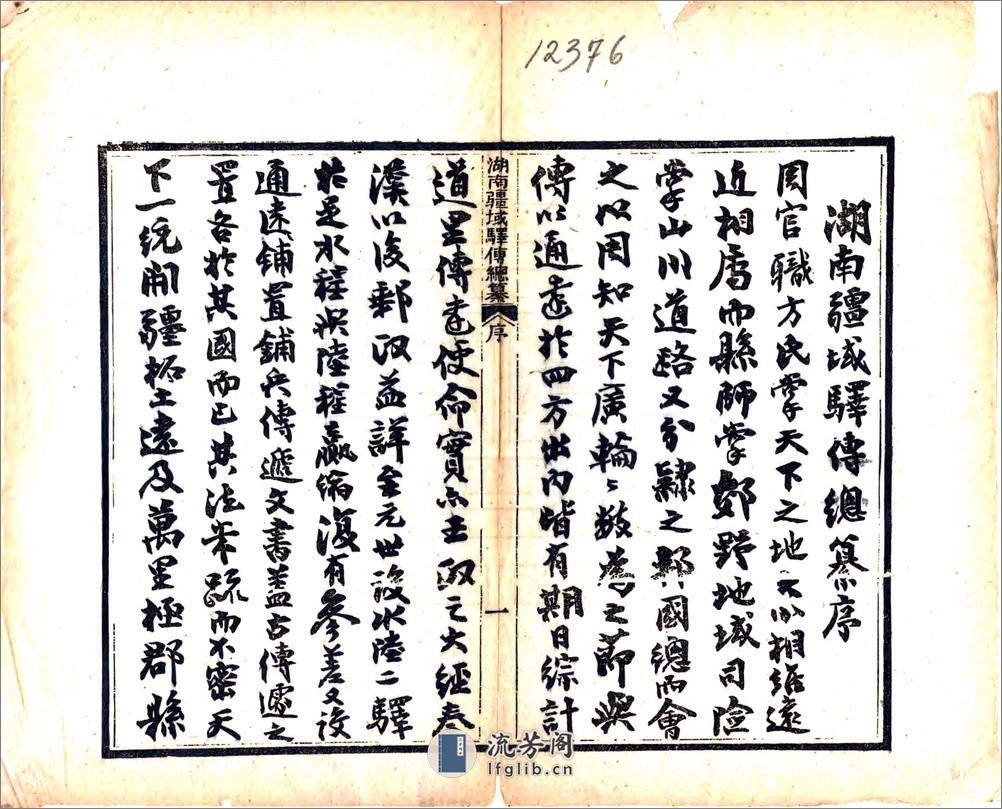 12376
湖南疆域驛傳總纂序
周官職方氏掌天下之地大小相維遠
近相屬而縣師掌鄙野地域司險
掌山川道路又分隸之郡國總而會
之以周知天下廣輪之數為之節與
傳以通達於四方出內皆有期日綜計
湖南疆域驛傳總纂 序 一
道里傳達使命實亦王政之大經秦
漢以後郵政益詳至元世設水陸二驛
於是水程與陸程贏縮復有參差又設
通遠鋪置鋪兵傳遞文書蓋古傳遽之
置各於其國而已其法常疏而不密天
下一統開疆拓土遠及萬里極郡縣
流芳阁
lfglib.cn